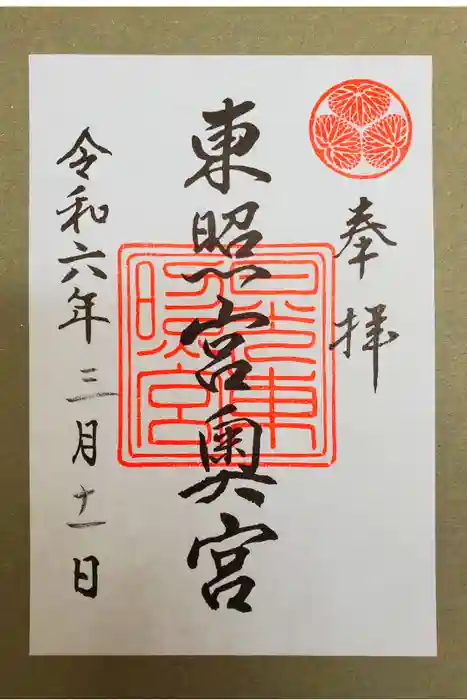 奉拝
東照宮奥宮
令和六年三月十一日